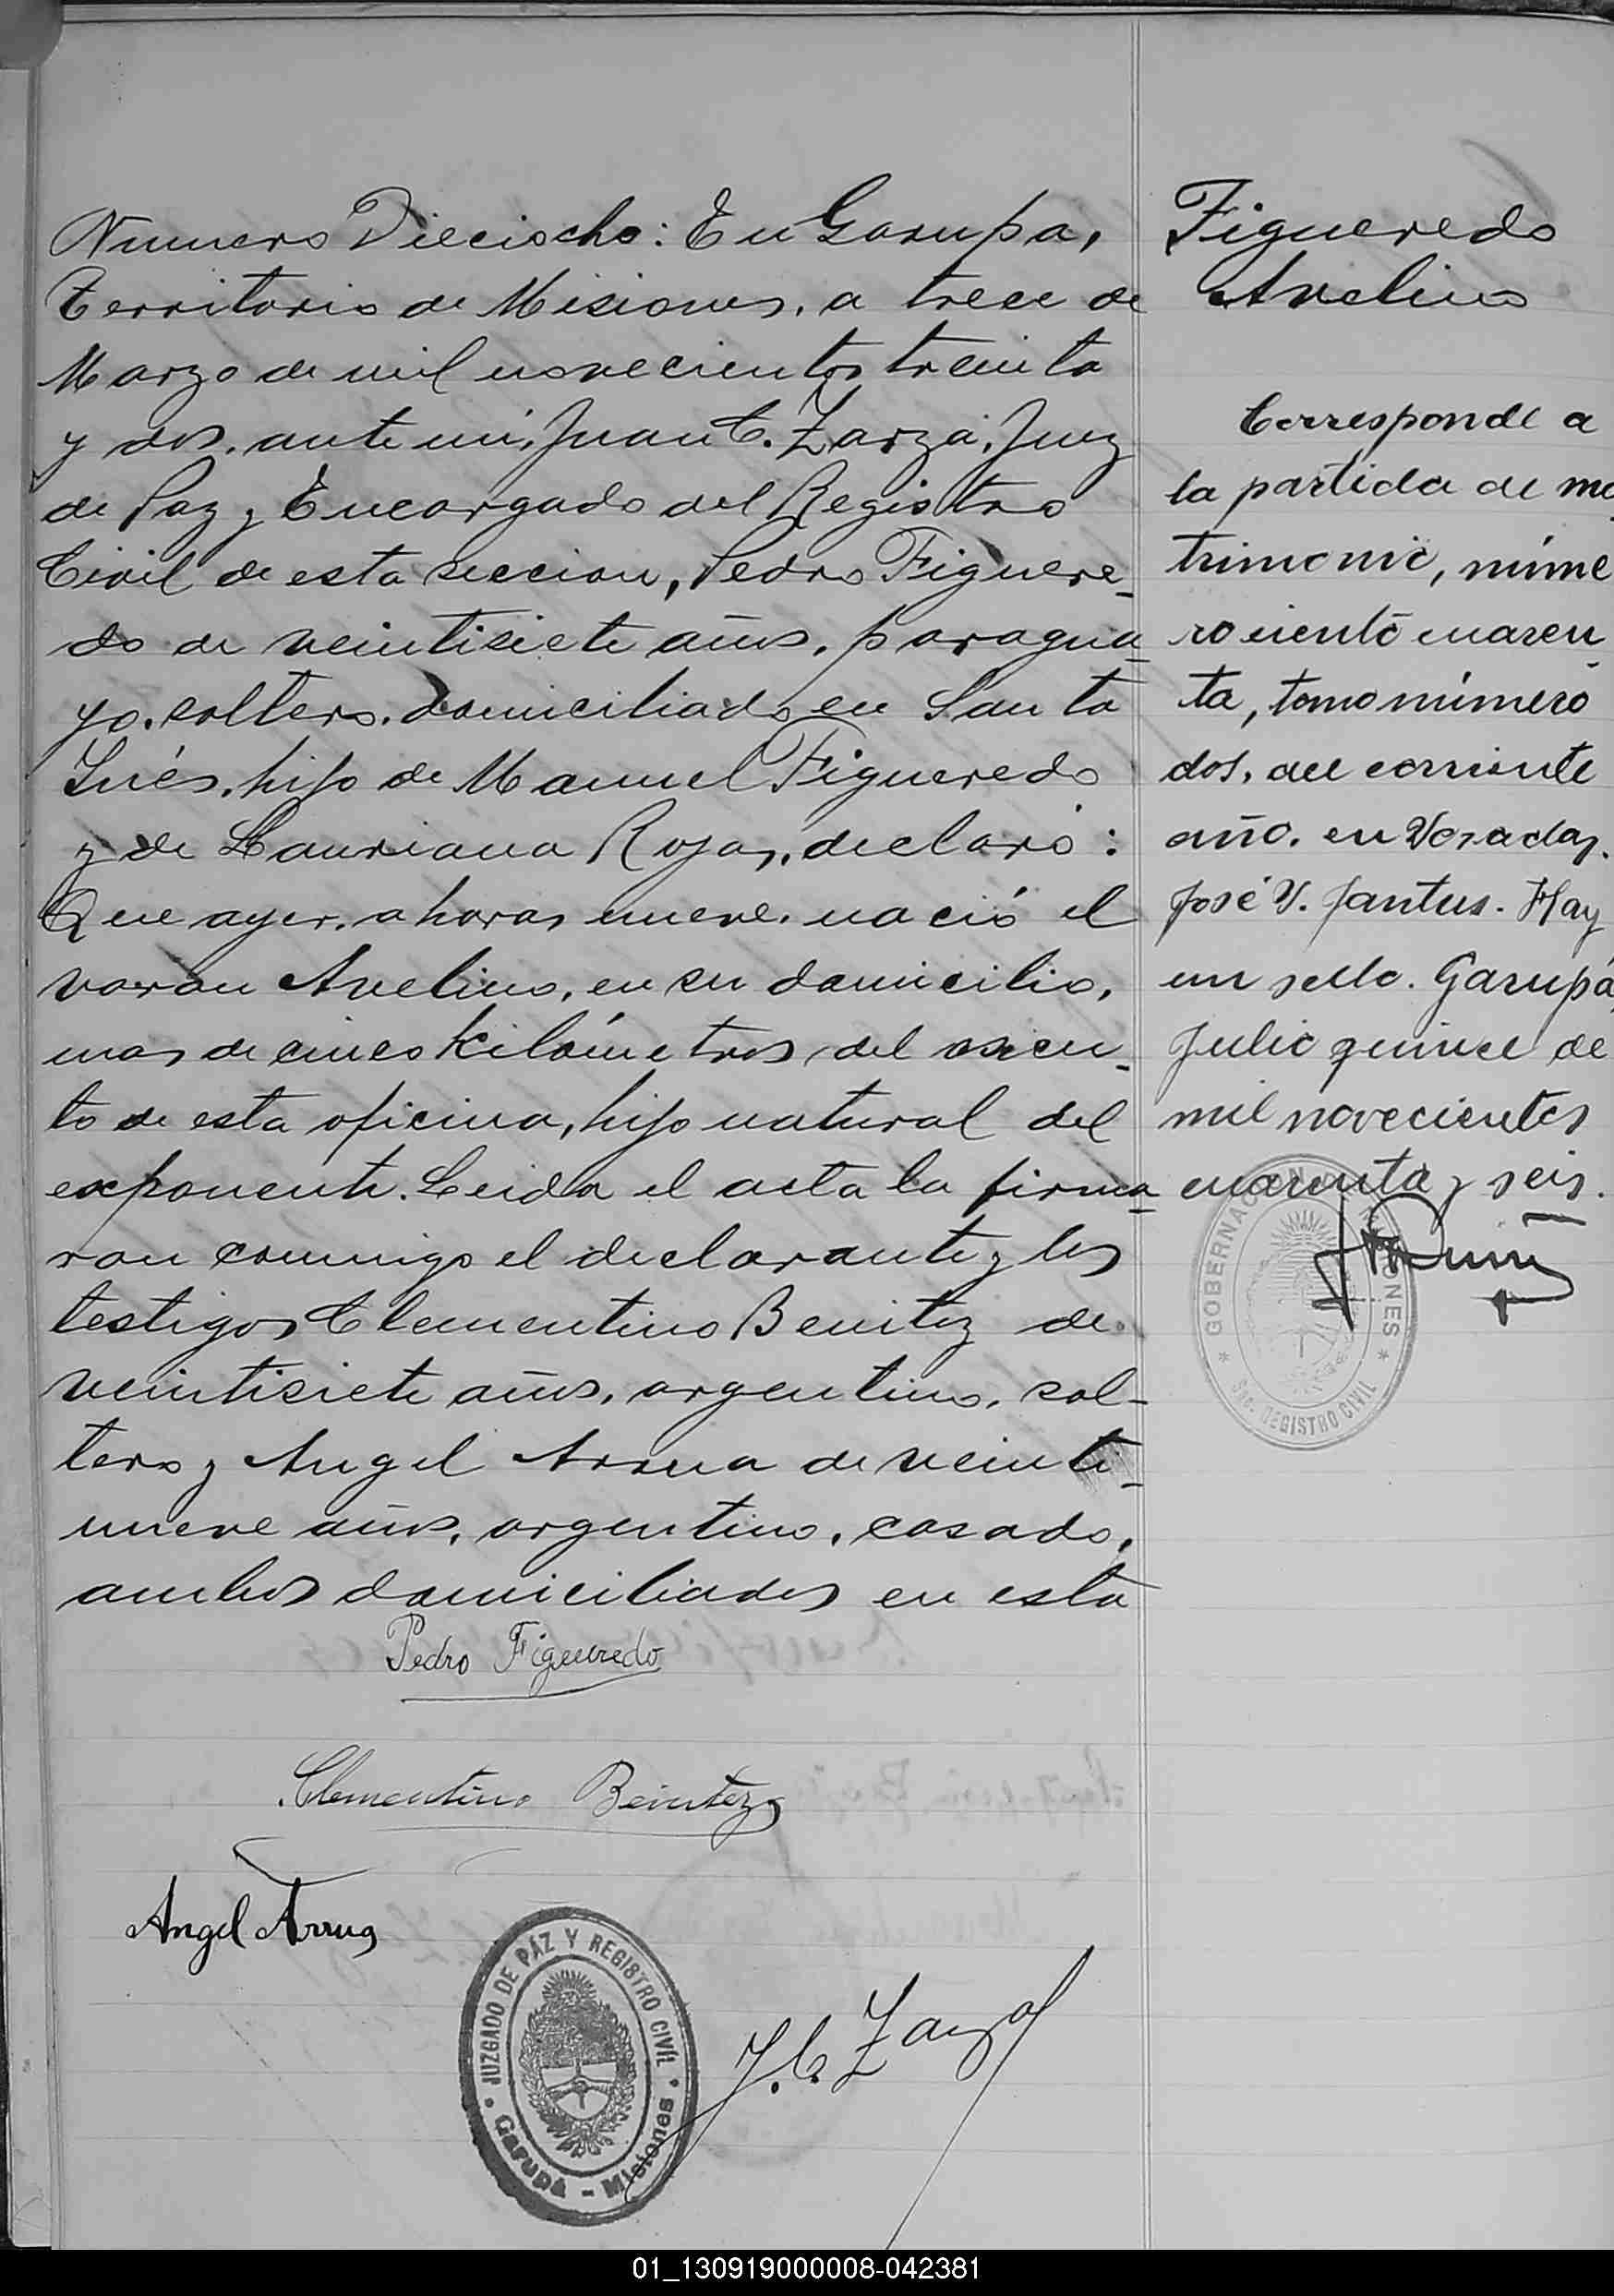 Numero Dieciocho: En Garupa,
Territorio de Misiones, a trece de
Marzo de mil novecientos treinta
y dos, ante mi, Juan C. Zarza, Juez
de Paz y Encargado del Registro
Civil de esta seccion, Pedro Figuere-
do de veintisiete años, paragua-
yo, soltero, domiciliado en Santa
Inés, hijo de Manuel Figueredo
y de Lauriana Rojas, declaró:
Que ayer, a horas nueve, nació el
varon Avelino, en su domicilio,
mas de cinco kilómetros del asien-
to de esta oficina, hijo natural del
exponente. Leida el acta la firma-
ron conmigo el declarante y los
testigos Clementino Benitez de
veintisiete años, argentino, sol-
tero y Angel Arrua de veinti-
nueve años, argentino, casado,
ambos domiciliados en esta
Pedro Figueredo
Clementino Benitez
Angel Arrua
JUZGADO DE PAZ Y REGISTRO CIVIL
GARUPÁ - Misiones
J. C. Zarza
Figueredo
Avelino
Corresponde a
la partida de ma
trimonio, núme
ro ciento cuaren
ta, tomo número
dos, del corriente
año. en Posadas.
José V. Jantus. Hay
un sello. Garupá,
Julio quince de
mil novecientos
cuarenta y seis.
GOBERNACION MISIONES
REGISTRO CIVIL
01_130919000008-042381